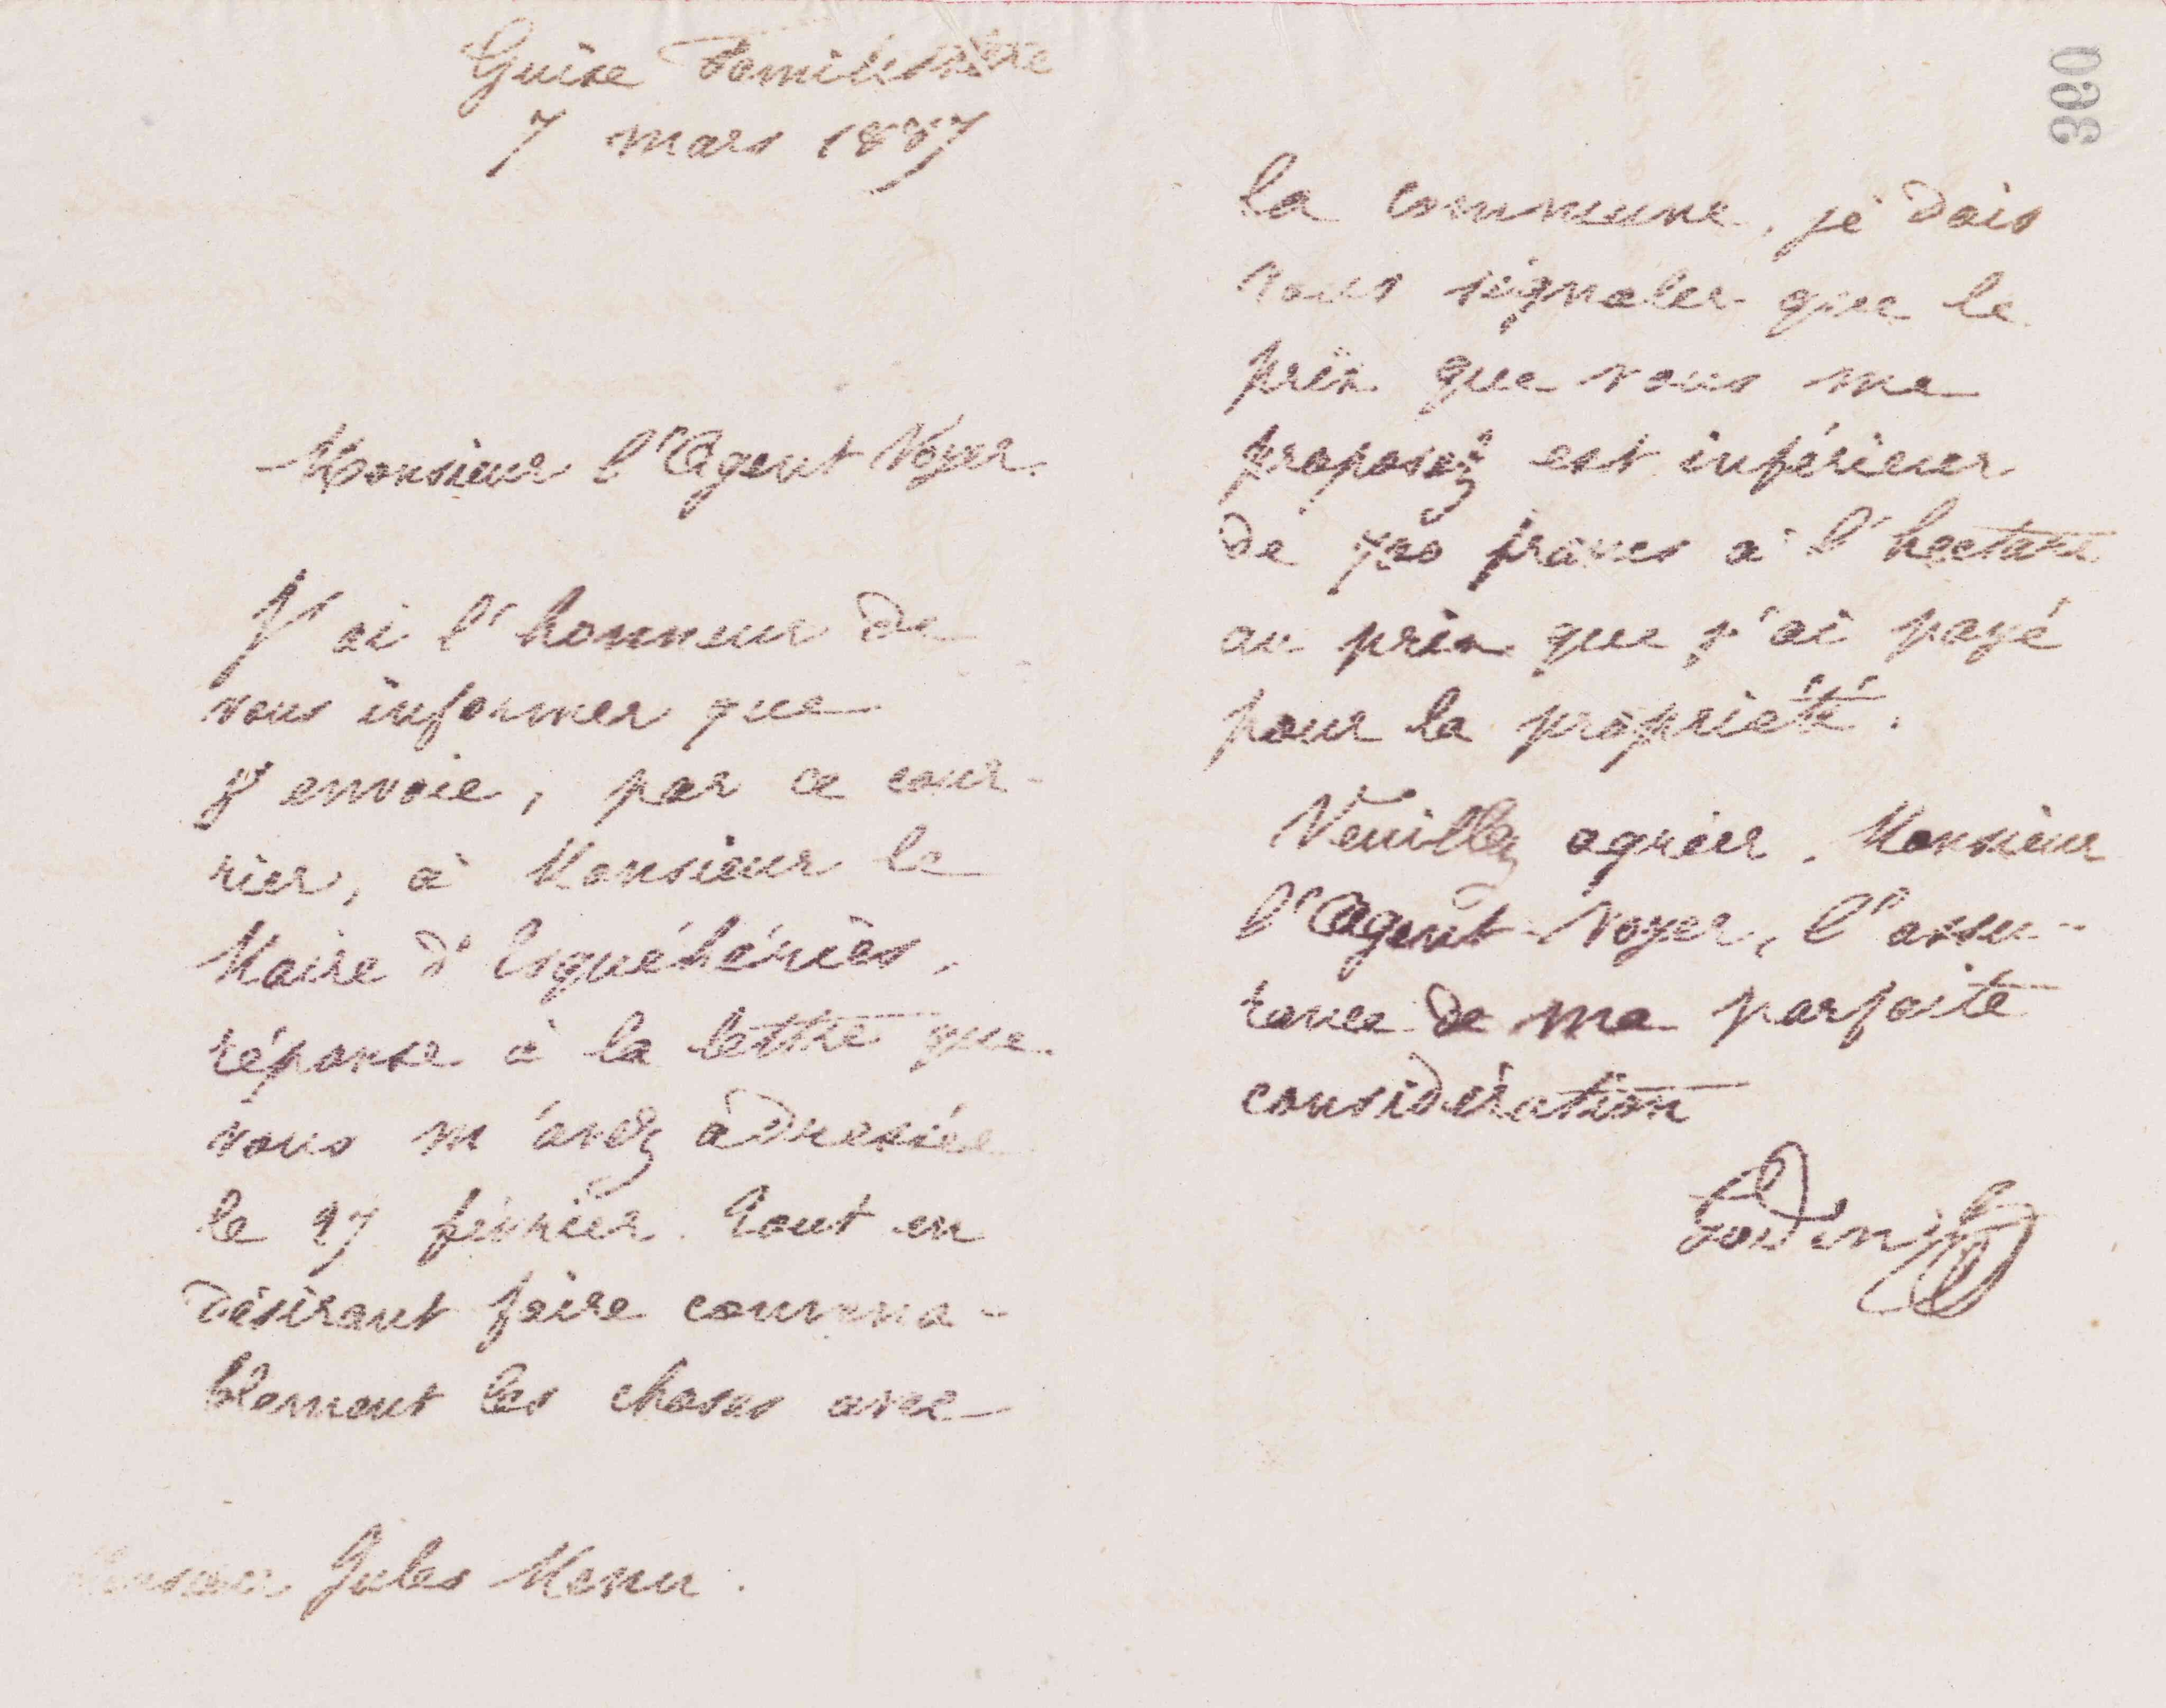 Guise Familistère
7 mars 1887
Monsieur l'Agent Voyer.
J'ai l'honneur de
vous informer que
j'envoie, par ce cour-
rier, à Monsieur le
Maire d'Esquéhéries,
réponse à la lettre que
vous m'avez adressée
le 27 février. Tout en
désirant faire convena-
blement les choses avec
Monsieur Jules Menu.
360
la commune, je dois
vous signaler que le
prix que vous me
proposez est inférieur
de francs à l'hectare
au prix que j'ai payé
pour la propriété.
Veuillez agréer, Monsieur
l'Agent-Voyer, l'assu-
rance de ma parfaite
considération
Godin